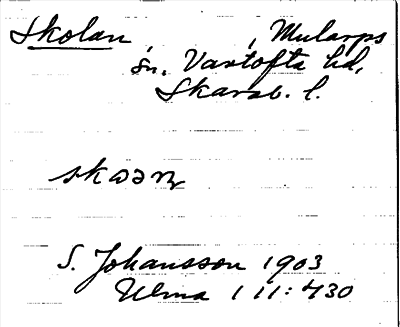 Skolan, Mularps
sn. Vartofta hd,
Skarab. l.
S. Johansson 1903
Ulma 111:430